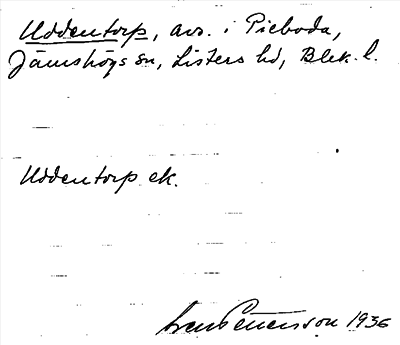 Uddentorp, avs. i Pieboda,
Jämshögs sn, Listers hd, Blek. l.
Uddentorp ek.
Sven Benson 1936